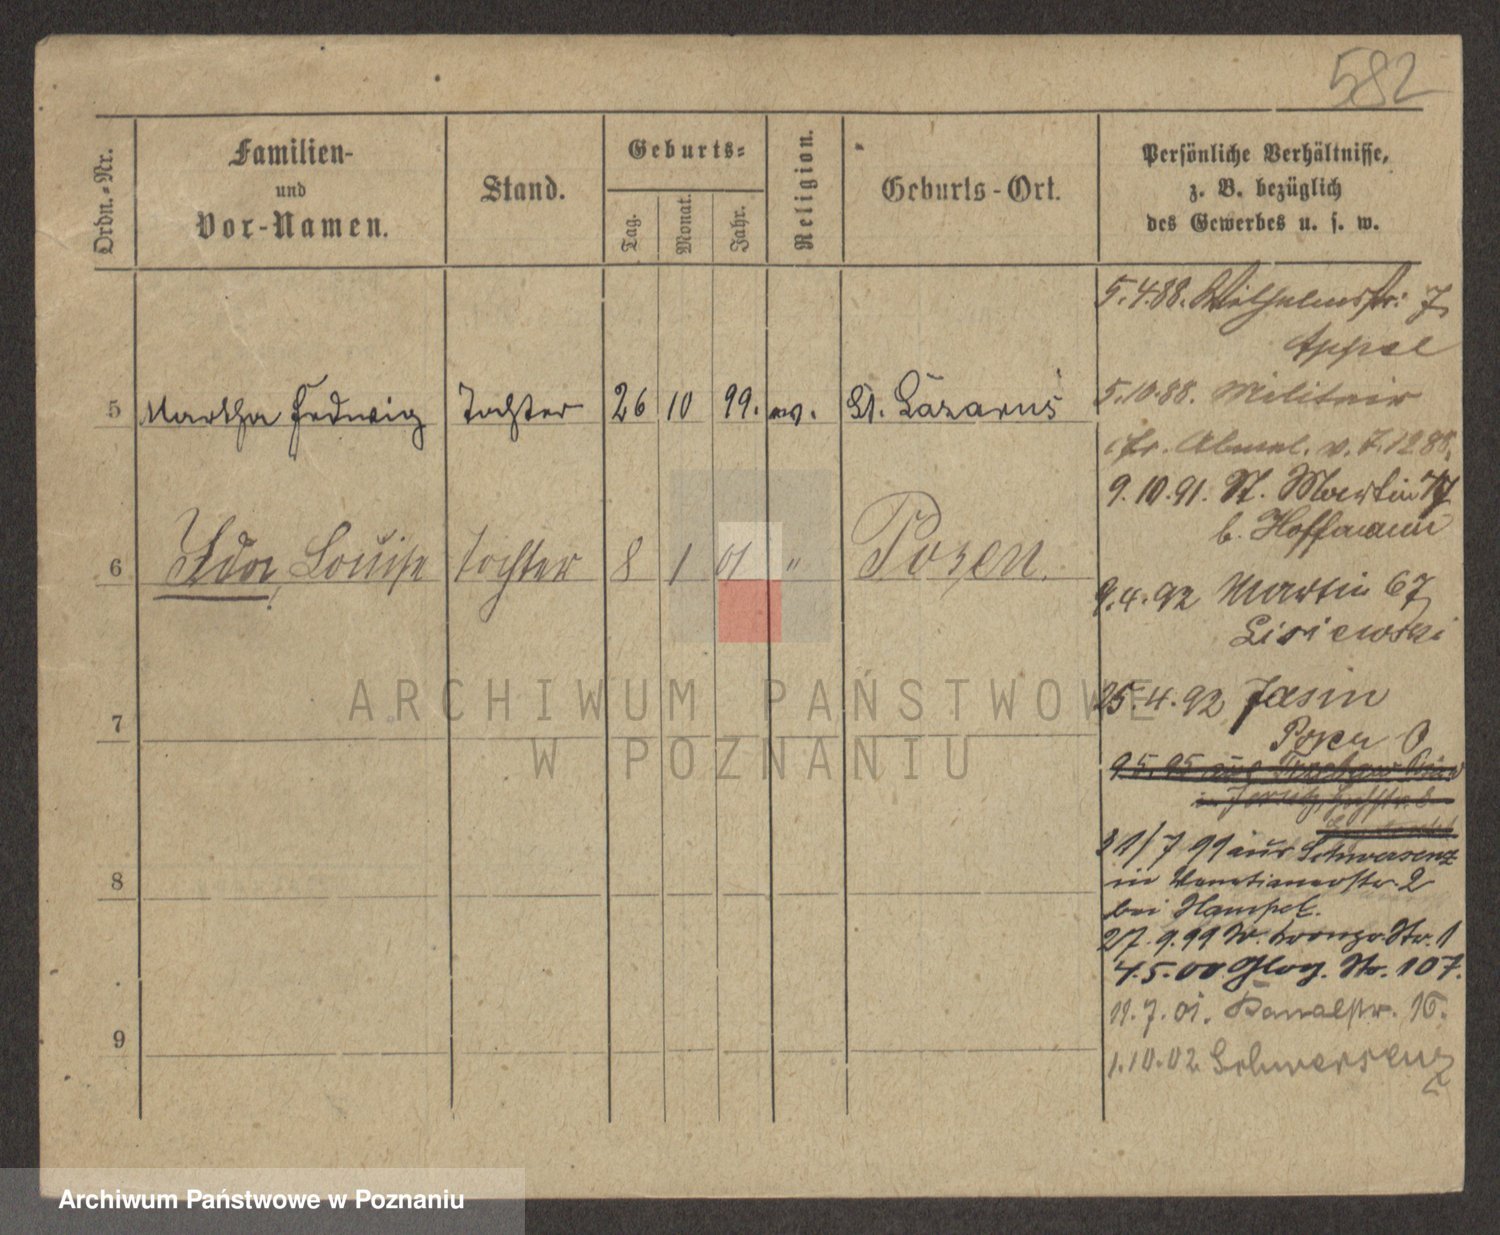 582
Ordn.-Nr.
Familien-
und
Vor-Namen.
Stand.
Geburts-
Tag.
Monat.
Jahr.
Religion.
Geburts-Ort.
Persönliche Verhältnisse,
z. B. bezüglich
des Gewerbes u. s. w.
5.4.88. Wilhelmsstr. 7
Appel
5.10.88. Militair
5 Martha Hedwig Tochter 26 10 99. ev. St. Lazarus
fr. Abmel. v. 7.12.88.
9.10.91. St. Martin 77
b. Hoffmann
6 Ida, Louise Tochter 8 1 01 " Posen.
9.4.92 Martin 67
Lisiewski
25.4.92 Jasin
Posen O
7
9.5.95 aus
in Jersitz
31/7 99 aus Schwersenz
in Venetianerstr. 2
bei Hampel.
8
27.9.99 St. 1
4.5.00 Glog. Str. 107.
11.7.01. Kanalstr. 16.
9
1.10.02 Schwersenz
ARCHIWUM PAŃSTWOWE
W POZNANIU
Archiwum Państwowe w Poznaniu